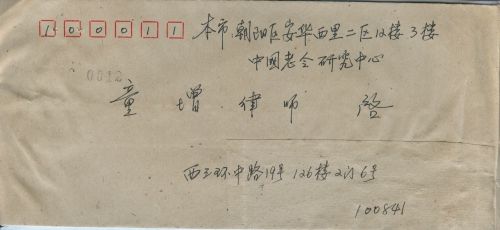 100011
本市朝阳区安华西里二区12楼3楼
中国老令研究中心
0012
童增律师 启
西三环中路19号126楼2门6号
100841